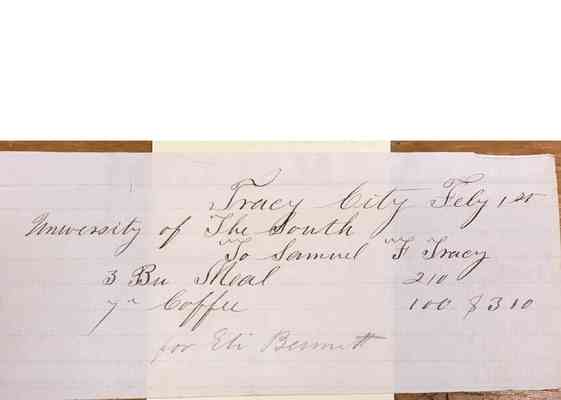 Tracy City Feby 1st
University of The South
To Samuel F Tracy
3 Bu Meal 210
7 " Coffee 100 $310
for Eli Bennett